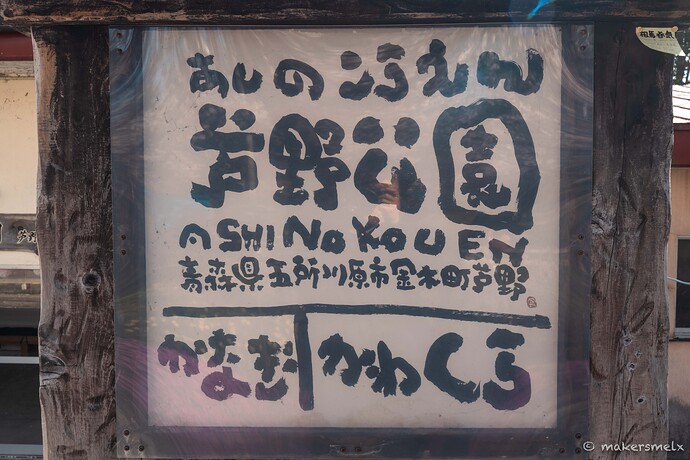 あしのこうえん
芦野公園
ASHINOKOUEN
青森県五所川原市金木町芦野
かなぎ かわくら
© makersmelx